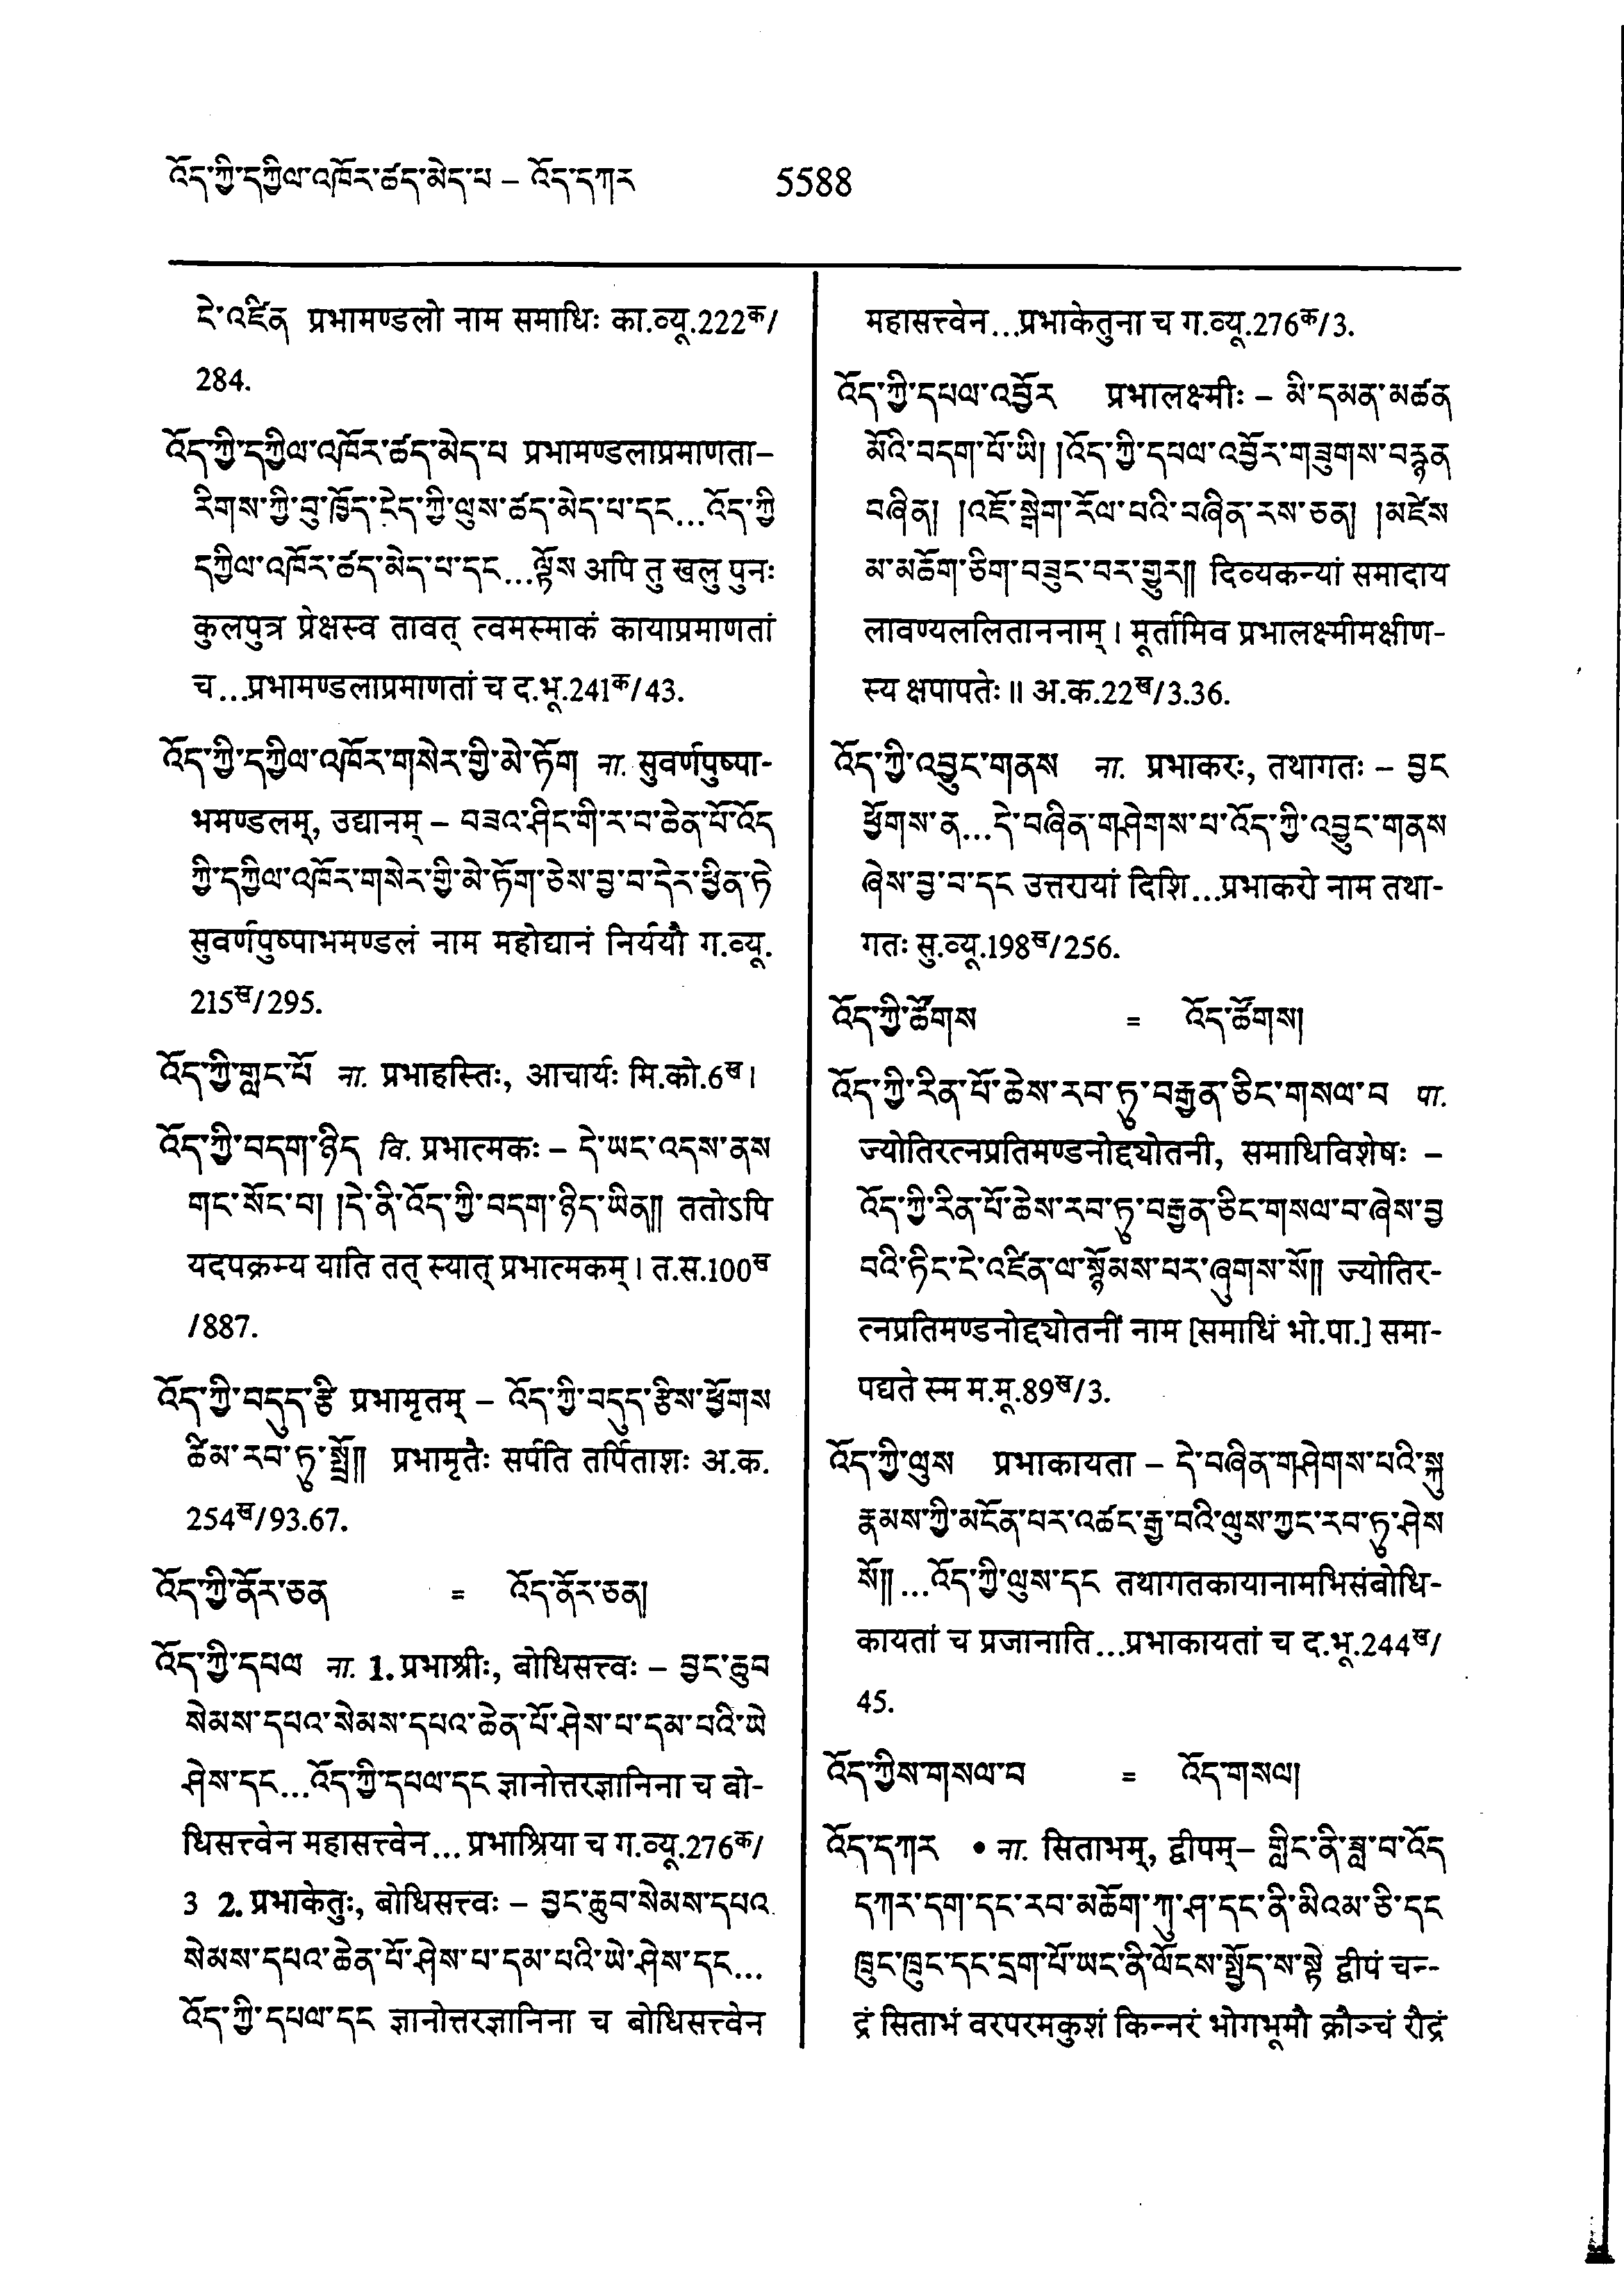 འོད་ཀྱི་དཀྱིལ་འཁོར་ཚད་མེད་པ – འོད་དཀར 5588
ངེ་འཛིན प्रभामण्डलो नाम समाधिः का.व्यू.222क/
284.
འོད་ཀྱི་དཀྱིལ་འཁོར་ཚད་མེད་པ प्रभामण्डलाप्रमाणता–
རིགས་ཀྱི་བུ་ཁྱོད་ངེད་ཀྱི་ལུས་ཚད་མེད་པ་དང...འོད་ཀྱི
དཀྱིལ་འཁོར་ཚད་མེད་པ་དང...ལྟོས अपि तु खलु पुनः
कुलपुत्र प्रेक्षस्व तावत् त्वमस्माकं कायाप्रमाणतां
च...प्रभामण्डलाप्रमाणतां च द.भू.241क/43.
འོད་ཀྱི་དཀྱིལ་འཁོར་གསེར་གྱི་མེ་ཏོག ना. सुवर्णपुष्पा-
भमण्डलम्, उद्यानम् – བཟའ་ཤིང་གི་ར་བ་ཆེན་པོ་འོད
ཀྱི་དཀྱིལ་འཁོར་གསེར་གྱི་མེ་ཏོག་ཅེས་བྱ་བ་དེར་ཕྱིན་ཏེ
सुवर्णपुष्पाभमण्डलं नाम महोद्यानं निर्ययौ ग.व्यू.
215ख/295.
འོད་ཀྱི་གླང་པོ ना. प्रभाहस्तिः, आचार्यः मि.को.6ख।
འོད་ཀྱི་བདག་ཉིད वि. प्रभात्मकः – དེ་ཡང་འདས་ནས
གང་སོང་བ། །དེ་ནི་འོད་ཀྱི་བདག་ཉིད་ཡིན།། ततोऽपि
यदपक्रम्य याति तत् स्यात् प्रभात्मकम्। त.स.100ख
/887.
འོད་ཀྱི་བདུད་རྩི प्रभामृतम् – འོད་ཀྱི་བདུད་རྩིས་ཕྱོགས
ཚིམ་རབ་ཏུ་སྤྲོ།། प्रभामृतैः सर्पति तर्पिताशः अ.क.
254ख/93.67.
འོད་ཀྱི་ནོར་ཅན = འོད་ནོར་ཅན།
འོད་ཀྱི་དཔལ ना. 1. प्रभाश्रीः, बोधिसत्त्वः – བྱང་ཆུབ
སེམས་དཔའ་སེམས་དཔའ་ཆེན་པོ་ཤེས་པ་དམ་པའི་ཡེ
ཤེས་དང...འོད་ཀྱི་དཔལ་དང ज्ञानोत्तरज्ञानिना च बो-
धिसत्त्वेन महासत्त्वेन... प्रभाश्रिया च ग.व्यू.276क/
3 2. प्रभाकेतुः, बोधिसत्त्वः – བྱང་ཆུབ་སེམས་དཔའ
སེམས་དཔའ་ཆེན་པོ་ཤེས་པ་དམ་པའི་ཡེ་ཤེས་དང...
འོད་ཀྱི་དཔལ་དང ज्ञानोत्तरज्ञानिना च बोधिसत्त्वेन
महासत्त्वेन...प्रभाकेतुना च ग.व्यू.276क/3.
འོད་ཀྱི་དཔལ་འབྱོར प्रभालक्ष्मीः – མི་དམན་མཚན
མོའི་བདག་པོ་ཡི། །འོད་ཀྱི་དཔལ་འབྱོར་གཟུགས་བརྙན
བཞིན། །འཇོ་སྒེག་རོལ་པའི་བཞིན་རས་ཅན། །མཛེས
མ་མཆོག་ཅིག་བཟུང་བར་གྱུར།། दिव्यकन्यां समादाय
लावण्यललिताननाम्। मूर्तामिव प्रभालक्ष्मीमक्षीण-
स्य क्षपापतेः॥ अ.क.22ख/3.36.
འོད་ཀྱི་འབྱུང་གནས ना. प्रभाकरः, तथागतः – བྱང
ཕྱོགས་ན...དེ་བཞིན་གཤེགས་པ་འོད་ཀྱི་འབྱུང་གནས
ཞེས་བྱ་བ་དང उत्तरायां दिशि...प्रभाकरो नाम तथा-
गतः सु.व्यू.198ख/256.
འོད་ཀྱི་ཚོགས = འོད་ཚོགས།
འོད་ཀྱི་རིན་པོ་ཆེས་རབ་ཏུ་བརྒྱན་ཅིང་གསལ་བ पा.
ज्योतिरत्नप्रतिमण्डनोद्द्योतनी, समाधिविशेषः –
འོད་ཀྱི་རིན་པོ་ཆེས་རབ་ཏུ་བརྒྱན་ཅིང་གསལ་བ་ཞེས་བྱ
བའི་ཏིང་ངེ་འཛིན་ལ་སྙོམས་པར་ཞུགས་སོ།། ज्योतिर-
त्नप्रतिमण्डनोद्द्योतनीं नाम [समाधिं भो.पा.] समा-
पद्यते स्म म.मू.89ख/3.
འོད་ཀྱི་ལུས प्रभाकायता – དེ་བཞིན་གཤེགས་པའི་སྐུ
རྣམས་ཀྱི་མངོན་པར་འཚང་རྒྱ་བའི་ལུས་ཀྱང་རབ་ཏུ་ཤེས
སོ།།...འོད་ཀྱི་ལུས་དང तथागतकायानामभिसंबोधि-
कायतां च प्रजानाति...प्रभाकायतां च द.भू.244ख/
45.
འོད་ཀྱིས་གསལ་བ = འོད་གསལ།
འོད་དཀར • ना. सिताभम्, द्वीपम्– གླིང་ནི་ཟླ་བ་འོད
དཀར་དག་དང་རབ་མཆོག་ཀུ་ཤ་དང་ནི་མིའམ་ཅི་དང
ཁྲུང་ཁྲུང་དང་དྲག་པོ་ཡང་ནི་ལོངས་སྤྱོད་ས་སྟེ द्वीपं चन्-
द्रं सिताभं वरपरमकुशं किन्नरं भोगभूमौ क्रौञ्चं रौद्रं